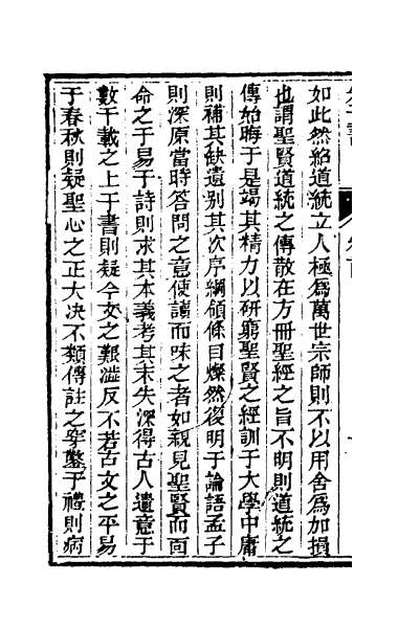 如此然紹道統立人極爲萬世宗師則不以用舍爲加損
也謂聖賢道統之傳散在方冊聖經之旨不明則道統之
傳始晦于是竭其精力以硏窮聖賢之經訓于大學中庸
則補其缺遺別其次序綱領條目燦然復明于論語孟子
則深原當時答問之意使讀而味之者如親見聖賢而面
命之于易于詩則求其本義考其末失深得古人遺意于
數千載之上于書則疑今文之艱澁反不若古文之平易
于春秋則疑聖心之正大决不類傳註之穿鑿于禮則病